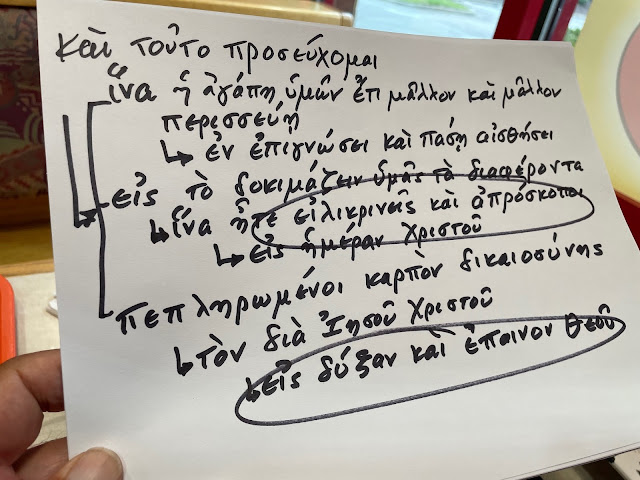 καὶ τοῦτο προσεύχομαι
ἵνα ἡ ἀγάπη ὑμῶν ἔτι μᾶλλον καὶ μᾶλλον
περισσεύῃ
ἐν ἐπιγνώσει καὶ πάσῃ αἰσθήσει
εἰς τὸ δοκιμάζειν ὑμᾶς τὰ διαφέροντα
ἵνα ἦτε εἰλικρινεῖς καὶ ἀπρόσκοποι
εἰς ἡμέραν Χριστοῦ
πεπληρωμένοι καρπὸν δικαιοσύνης
τὸν διὰ Ἰησοῦ Χριστοῦ
εἰς δόξαν καὶ ἔπαινον θεοῦ